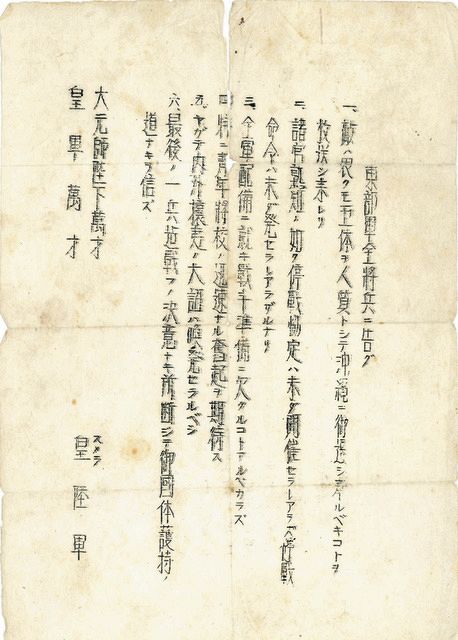 東部軍全將兵ニ告グ
一、敵ハ畏クモ玉体ヲ人質トシテ沖縄ニ御遷シ奉ルベキコトヲ
放送シ来レリ
二、諸官熟知ノ如ク停戦協定ハ未ダ開催セラレアラズ停戦
命令ハ未ダ発セラレアラザルナリ
三、全軍配備ニ就キ戦斗準備ニ欠グルコトアルベカラズ
四、特ニ青年將校ノ迅速ナル奮起ヲ期待ス
五、ヤガテ内外ノ大詔ハ喚発セラルベシ
六、最後ノ一兵迄戦フノ決意ナキ シテ御國体護持ノ
道ナキヲ信ズ
大元帥陛下萬才
皇軍萬才
スメラ
皇陸軍